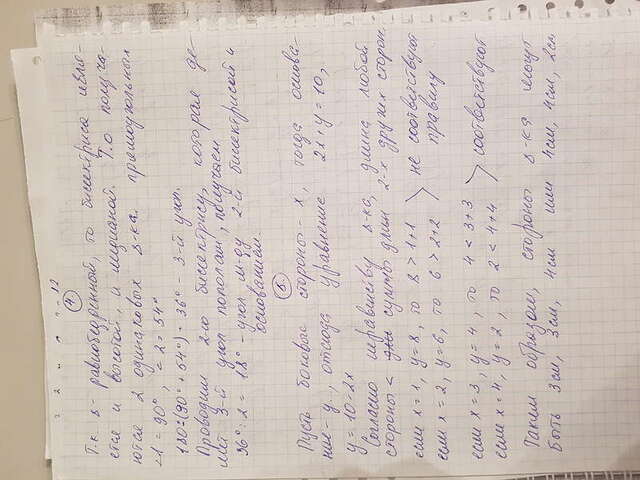 4
Т.к. Δ - равнобедренный, то биссектриса явля-
ется и высотой, и медианой. Т.о получа-
ются 2 одинаковых Δ-ка прямоугольных
∠1 = 90°, ∠2 = 54°
180°-(90° + 54°) = 36° - 3-й угол.
Проводим 2-ю биссектрису, которая де-
лит 3-й угол пополам, получаем
36° : 2 = 18° - угол м-ду 2-й биссектрисой и
основанием.
5.
Пусть боковые стороны - x, тогда основа-
ние - y, отсюда уравнение 2x + y = 10,
y = 10 - 2x
Согласно неравенству Δ-ка, длина любой
стороны < суммы длин 2-х других сторон.
если x = 1, y = 8, то 8 > 1+1
если x = 2, y = 6, то 6 > 2+2
не соответствуют
правилу
если x = 3, y = 4, то 4 < 3+3
если x = 4, y = 2, то 2 < 4+4
соответствуют
Таким образом, стороны Δ-ка могут
быть 3см, 3см, 4см или 4см, 4см, 2см